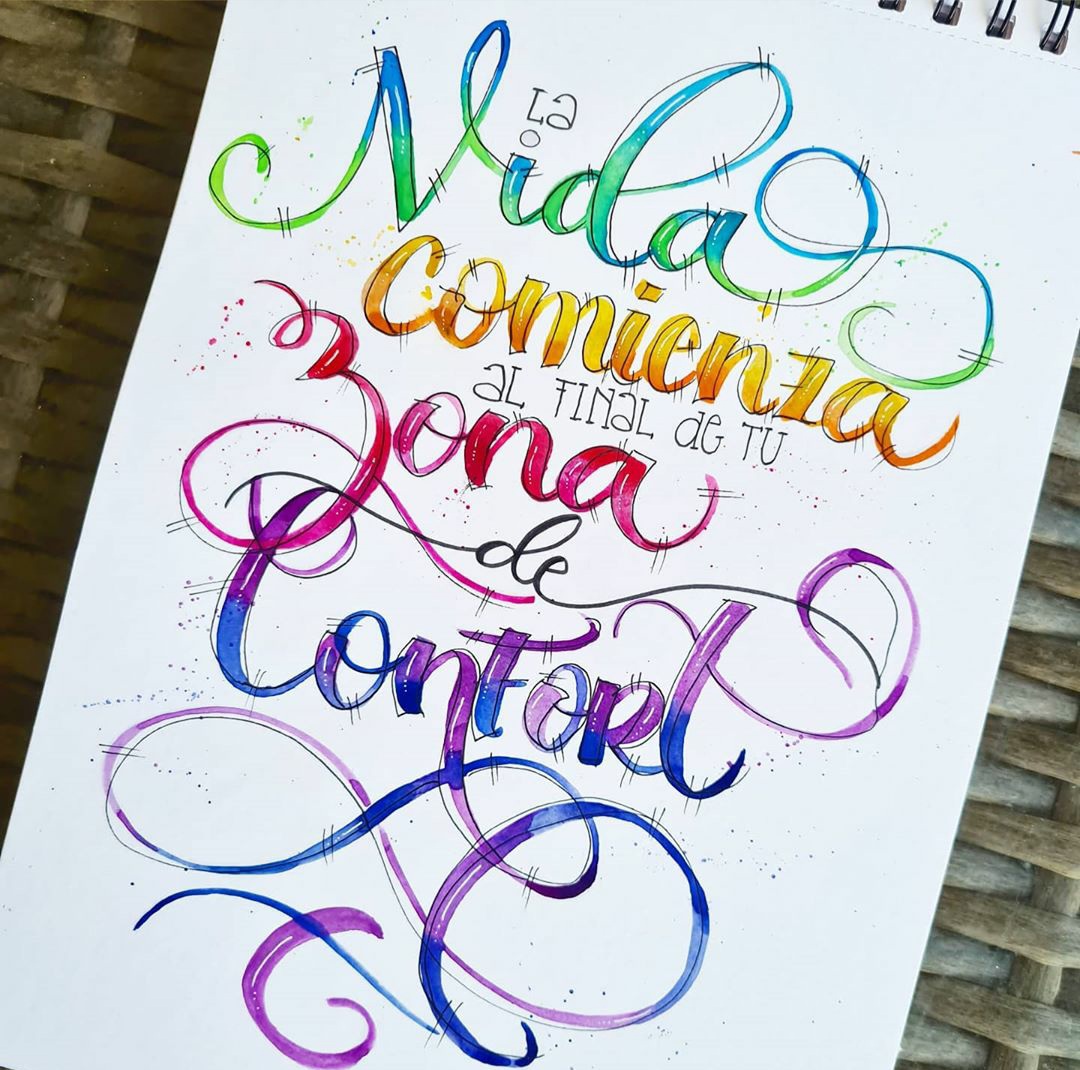 La
Vida
Comienza
AL FINAL de TU
Zona
de
Confort